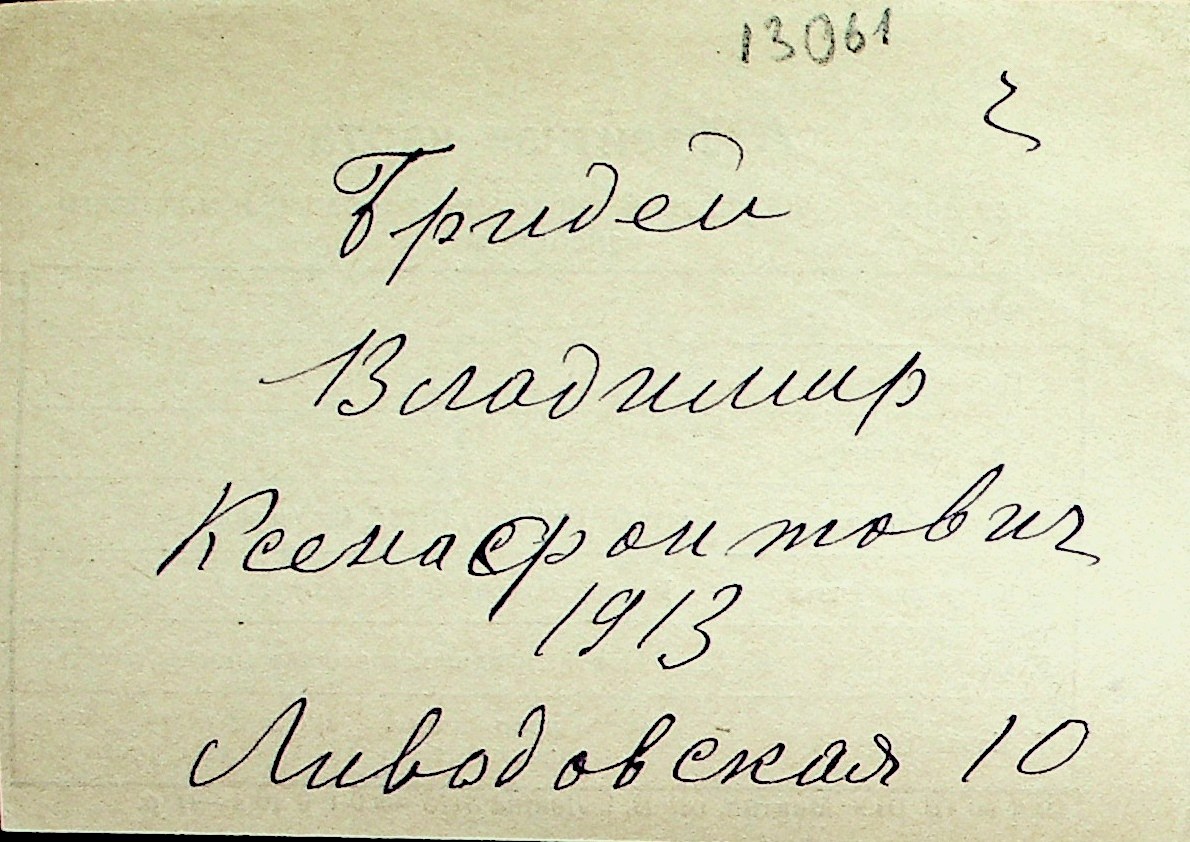 13061
Гридей
Владимир
Ксенафонтович
1913
Ливадовская 10